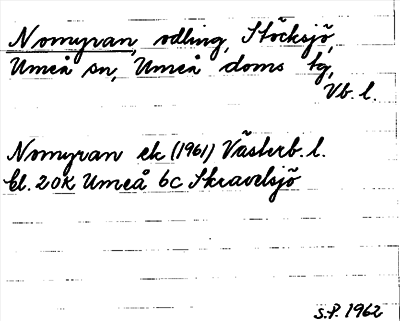 Nomyran, odling, Stöcksjö,
Umeå sn, Umeå doms tg,
Vb. l.
Nomyran ek (1961) Västerb. l.
bl. 20K Umeå 6c Skravelsjö
S.P. 1962